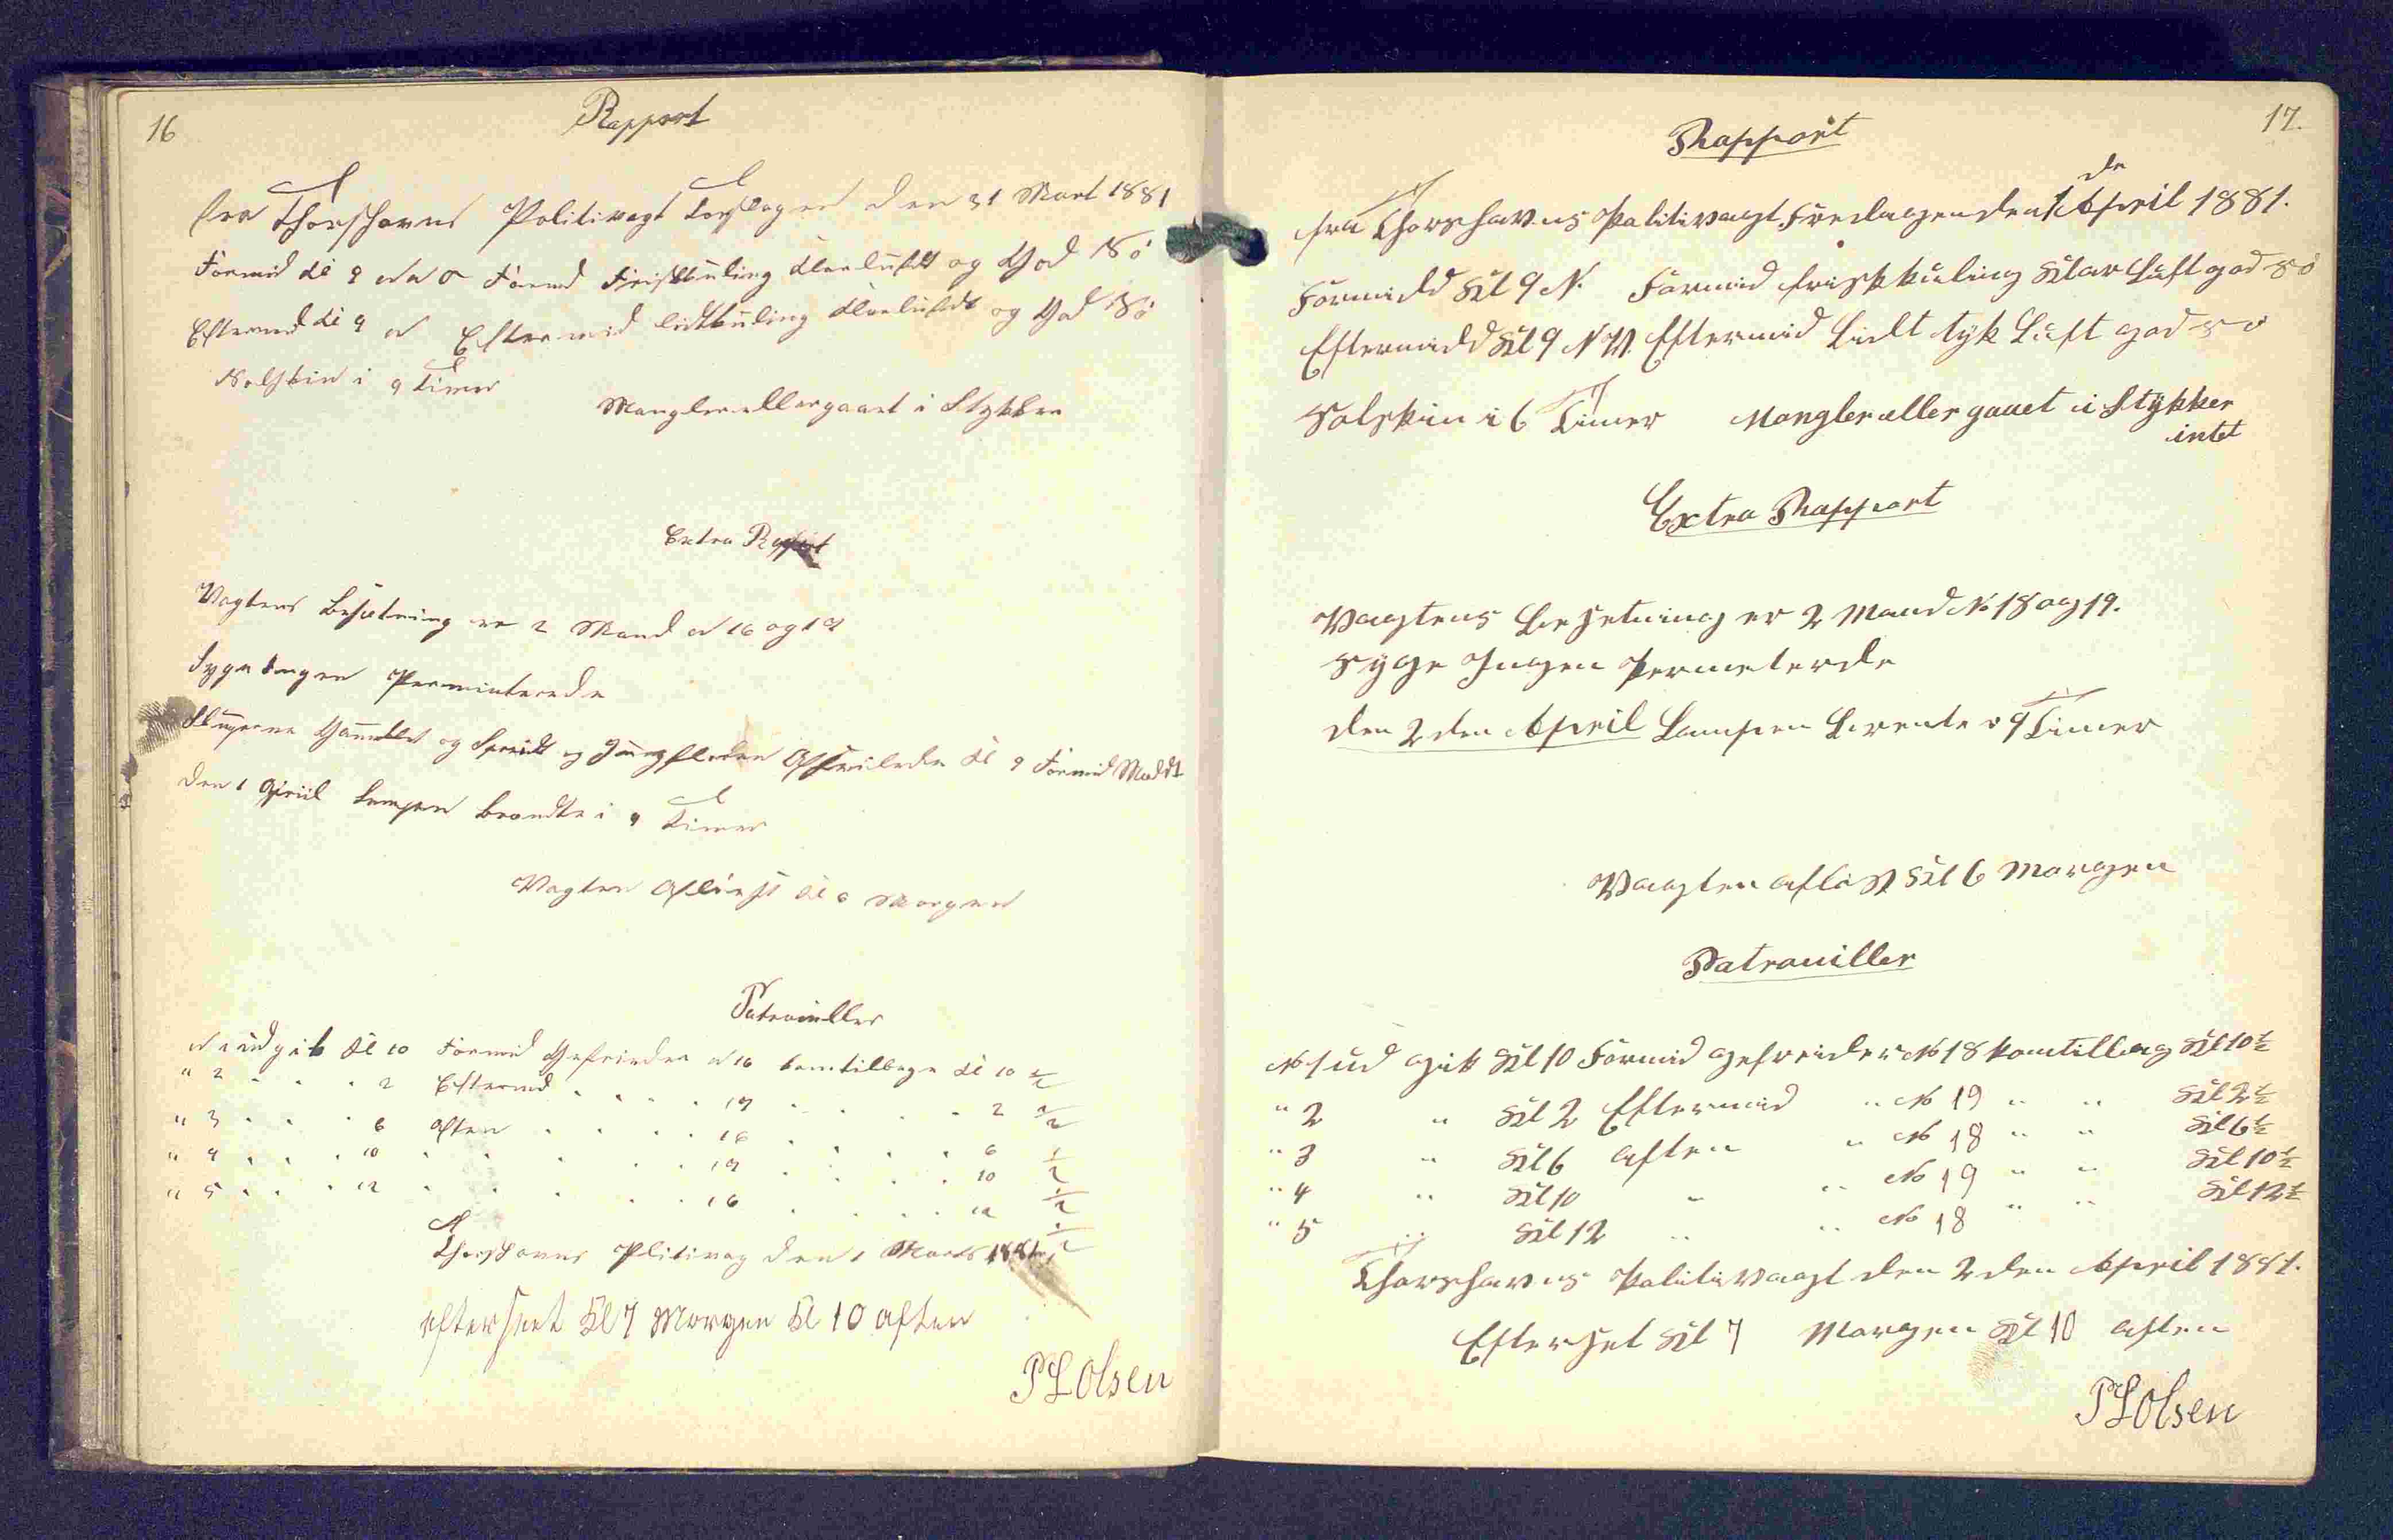 16
Rapport
fra Thorshavns Politivagt Torsdagen den 31 Mart 1881
Formid Kl 9 Formd Friskkuling klarluft og God Sö
Eftermd Kl 9 Eftermid lidtkuling klarluft og God Sö
Solskin i 9 Timer
Mangler eller gaaet i Stykker
Extra Rapport
Vagtens Besætning er 2 Mand N 16 og 19
Syge Ingen Perminterede
og Kl 9 Formid
den 1 Apriil Lampen brændte i 9 Timer
Vagten Aflöest Kl 6 Morgen
Patrouiller
N 1 udgik Kl 10 Formid Gefreider N 16 komtilbage Kl 10 1/2
" 2 " " " 2 Eftermd " " " " 19 " " " " 2 1/2
" 3 " " " 6 Aften " " " " 16 " " " " 6 1/2
" 4 " " " 10 " " " " " 19 " " " " 10 1/2
" 5 " " " 12 " " " " " 16 " " " " 12 1/2
Thorshavns Plitivag den 1 Marts 1881
efterseet Kl 7 Morgen Kl 10 aften
P L Olsen
17.
Rapport
fra Thorshavns Politivagt Fredagen den 1 de April 1881.
Formidd Kl 9 N. Formid friskkuling Klar Luft god sö
Eftermidd Kl 9 N V. Eftermid Lidt tyk Luft god sö
Solskin i 6 Timer Mangler eller gaaet i Stykker
intet
Extra Rapport
Vagtens Besetning er 2 Mand No 18 og 19.
Syge Ingen Permeterde
den 2 den April Lampen Brente 9 Timer
Vagten aflöst Kl 6 Morgen
Patrouiller
No 1 ud gik Kl 10 Formid gefreider No 18 komtilbag Kl 10 1/2
" 2 " Kl 2 Eftermid " No 19 " " Kl 2 1/2
" 3 " Kl 6 Aften " No 18 " " Kl 6 1/2
" 4 " Kl 10 " " No 19 " " Kl 10 1/2
" 5 " Kl 12 " " No 18 " " Kl 12 1/2
Thorshavns Politivagt den 2 den April 1881.
Efterset Kl 7 Morgen Kl 10 Aften
P L Olsen